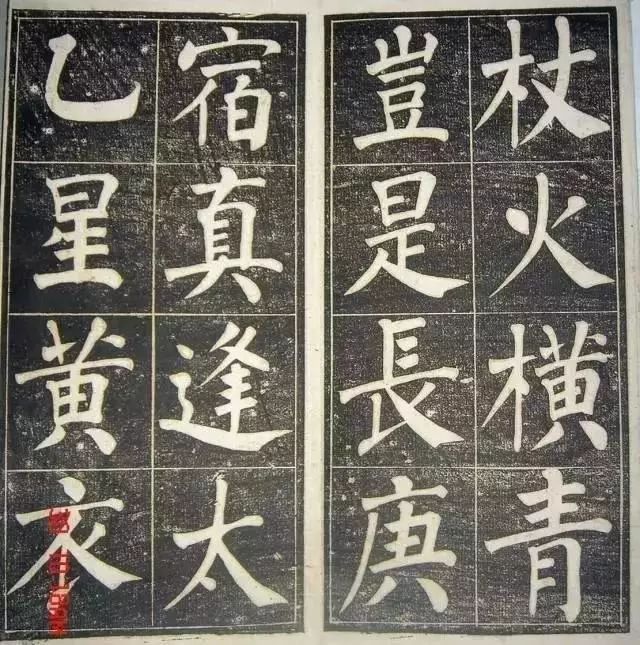 杖火橫青
豈是長庚
宿真逢太
乙星黄衣